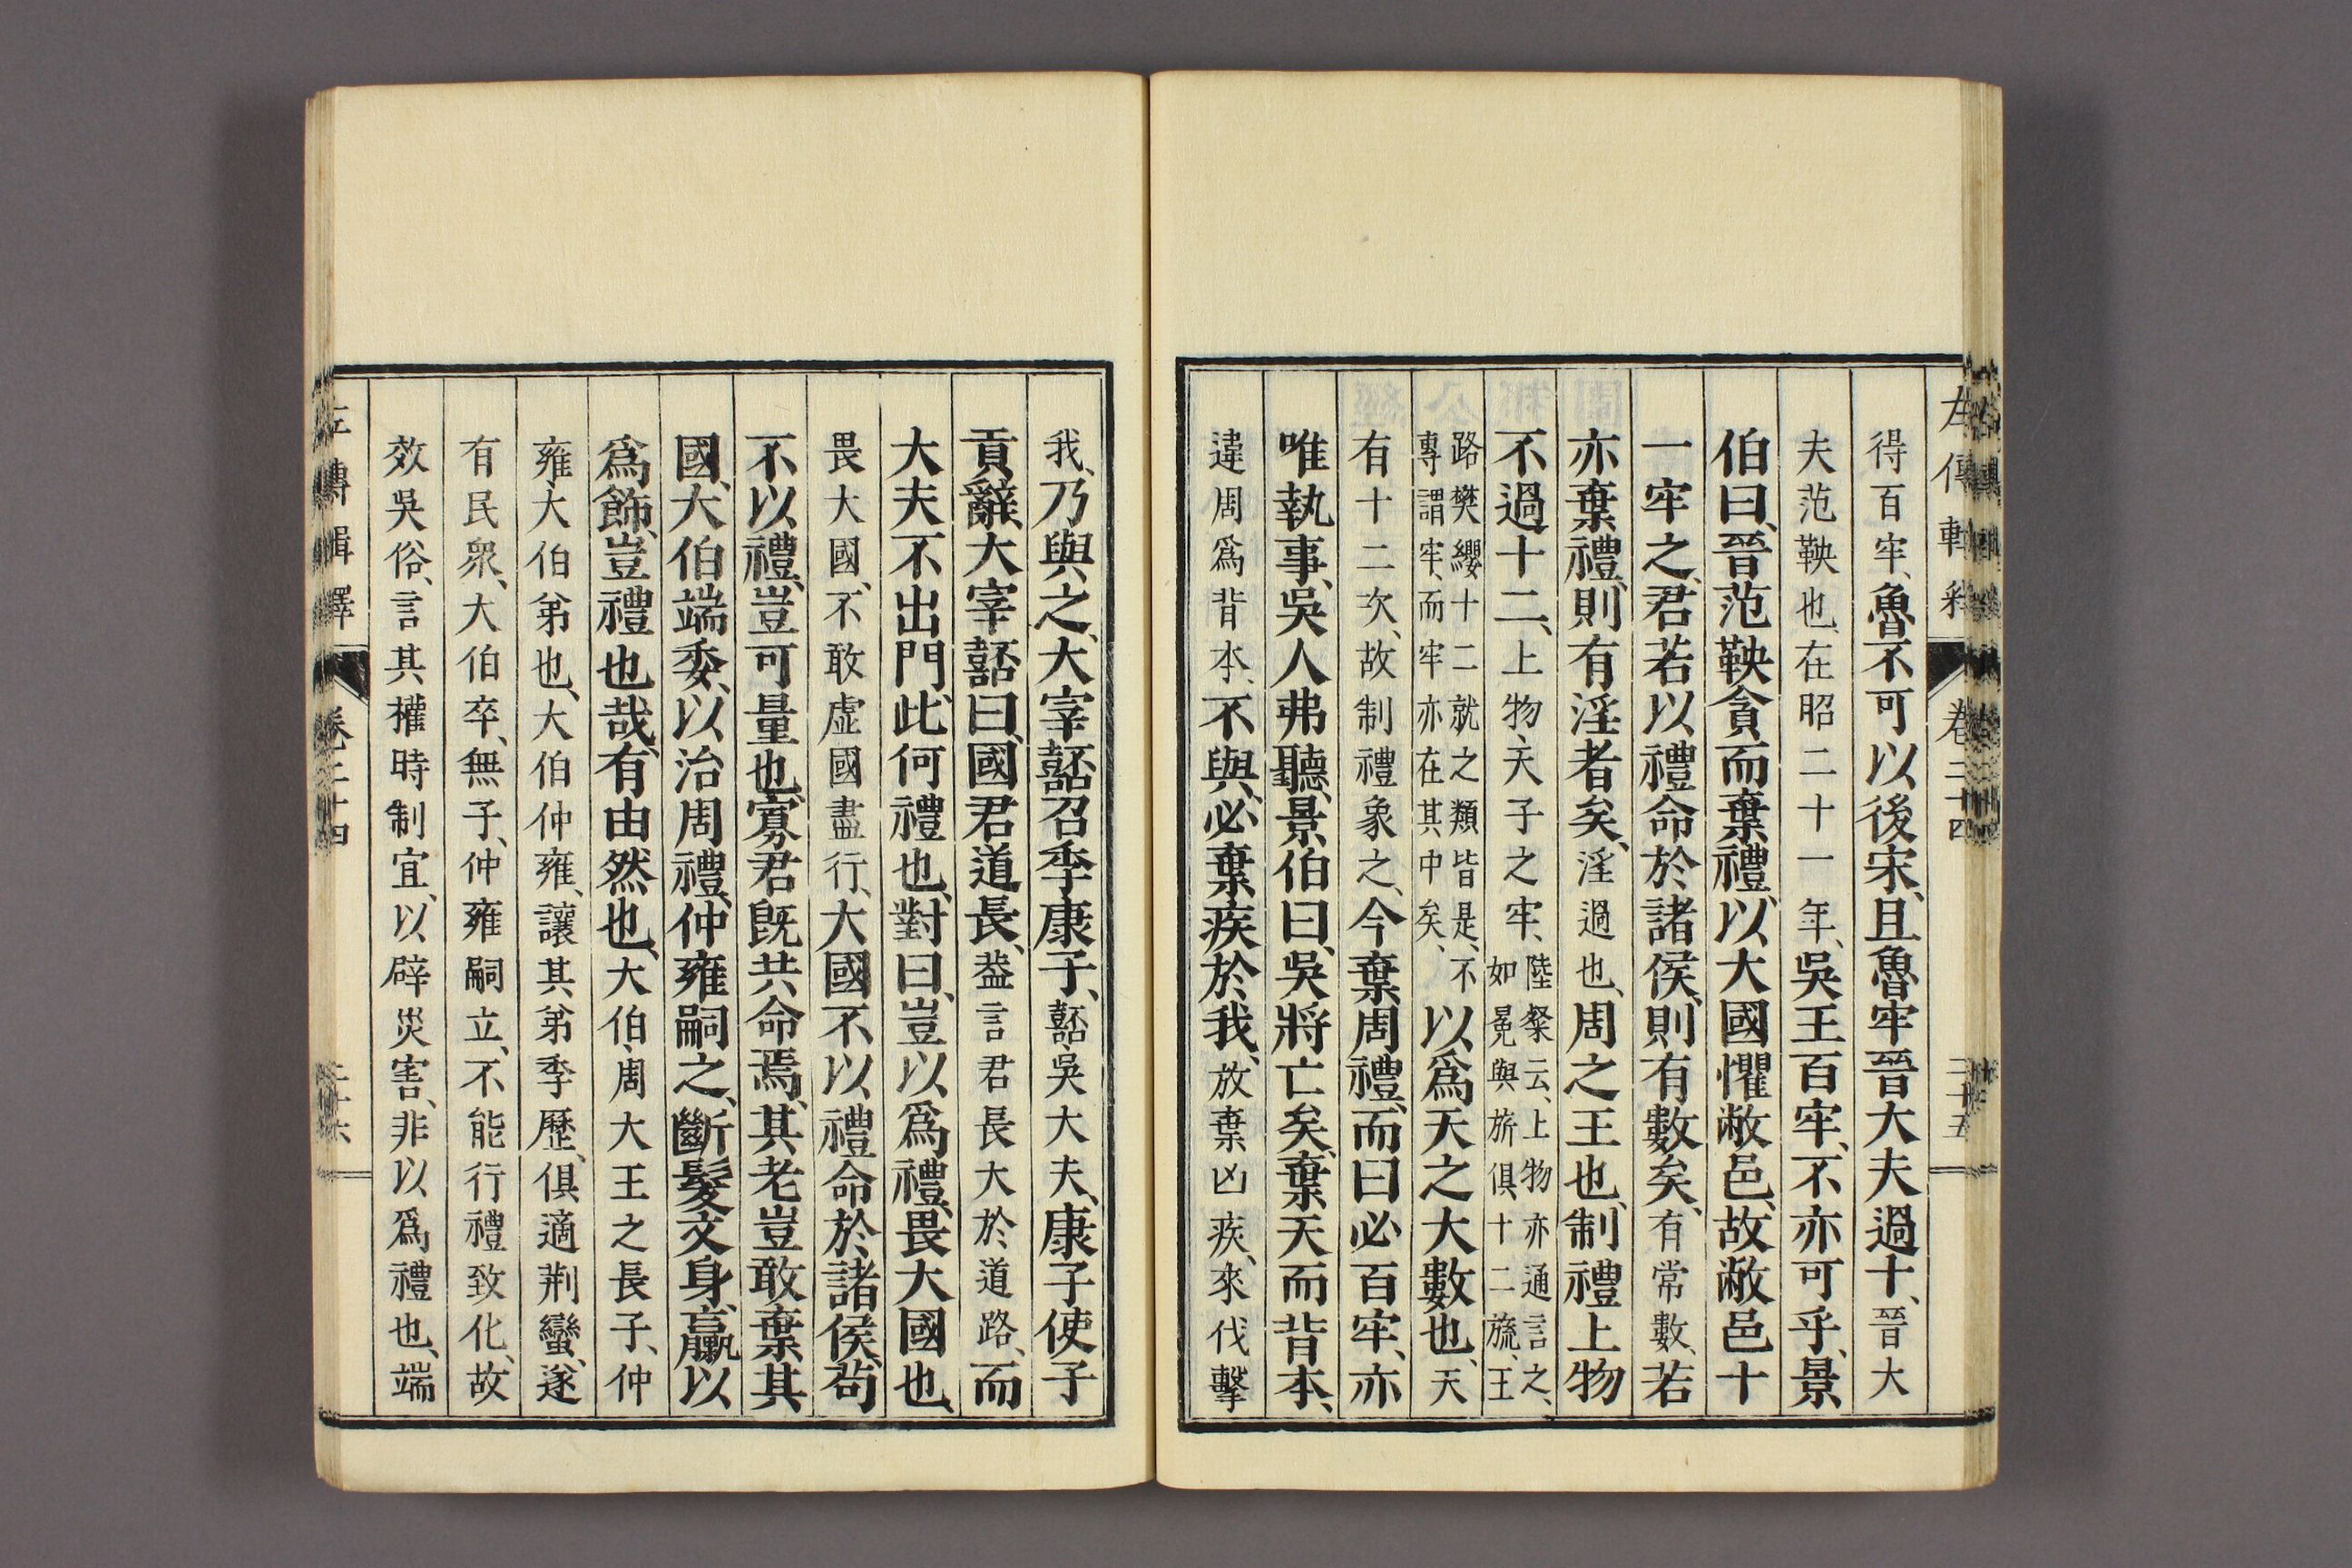 得百牢、魯不可以後宋、且魯牢晉大夫過十、晉大
夫范鞅也、在昭二十一年、吳王百牢、不亦可乎、景
伯曰、晉范鞅貪而棄禮、以大國懼敝邑、故敝邑十
一牢之、君若以禮命於諸侯、則有數矣、有常數、若
亦棄禮、則有淫者矣、淫過也、周之王也、制禮上物
不過十二、上物、天子之牢、陸粲云、上物亦通言之、如冕與旂俱十二旒、王
路樊纓十二就之類皆是、不專謂牢、而牢亦在其中矣、以爲天之大數也、天
有十二次、故制禮象之、今棄周禮、而曰必百牢、亦
唯執事、吳人弗聽、景伯曰、吳將亡矣、棄天而背本、
違周爲背本、不與、必棄疾於我、放棄凶疾、來伐擊
左傳輯釋 卷二十四 二十五
我、乃與之、大宰嚭召季康子、嚭、吳大夫、康子使子
貢辭、大宰嚭曰、國君道長、葢言君長大於道路、而
大夫不出門、此何禮也、對曰、豈以爲禮、畏大國也、
畏大國、不敢虛國盡行、大國不以禮命於諸侯、苟
不以禮、豈可量也、寡君既共命焉、其老豈敢棄其
國、大伯端委、以治周禮、仲雍嗣之、斷髮文身、臝以
爲飾、豈禮也哉、有由然也、大伯、周大王之長子、仲
雍、大伯弟也、大伯仲雍、讓其弟季歷、俱適荆蠻、遂
有民衆、大伯卒、無子、仲雍嗣立、不能行禮致化、故
效吳俗、言其權時制宜、以辟災害、非以爲禮也、端
左傳輯釋 卷二十四 二十六